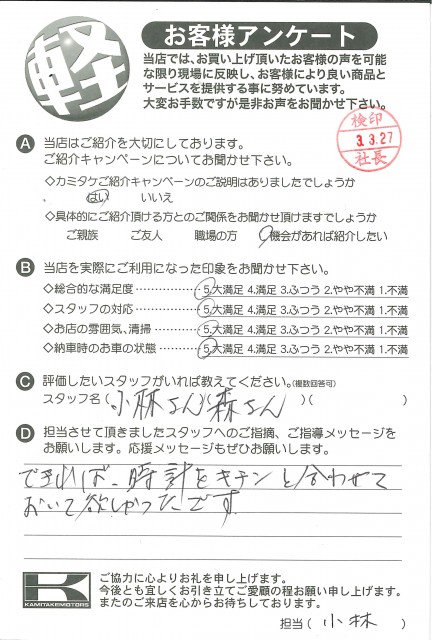 軽
お客様アンケート
当店では、お買い上げ頂いたお客様の声を可能
な限り現場に反映し、お客様により良い商品と
サービスを提供する事に努めています。
大変お手数ですが是非お声をお聞かせ下さい。
検印
3.3.27
社長
A 当店はご紹介を大切にしております。
ご紹介キャンペーンについてお聞かせ下さい。
◇カミタケご紹介キャンペーンのご説明はありましたでしょうか
はい いいえ
◇具体的にご紹介頂ける方とのご関係をお聞かせ頂けますでしょうか
ご親族 ご友人 職場の方 機会があれば紹介したい
B 当店を実際にご利用になった印象をお聞かせ下さい。
◇総合的な満足度……………5.大満足 4.満足 3.ふつう 2.やや不満 1.不満
◇スタッフの対応……………5.大満足 4.満足 3.ふつう 2.やや不満 1.不満
◇お店の雰囲気、清掃………5.大満足 4.満足 3.ふつう 2.やや不満 1.不満
◇納車時のお車の状態………5.大満足 4.満足 3.ふつう 2.やや不満 1.不満
C 評価したいスタッフがいれば教えてください。(複数回答可)
スタッフ名(小林さん)(森さん)( )
D 担当させて頂きましたスタッフへのご指摘、ご指導メッセージを
お願いします。応援メッセージもぜひお願いします。
できれば、時計をキチンと合わせて
おいて欲しかったです
K
KAMITAKEMOTORS
ご協力に心よりお礼を申し上げます。
今後とも宜しくお引き立てご愛顧の程お願い申し上げます。
またのご来店を心からお待ちしております。
担当(小林)